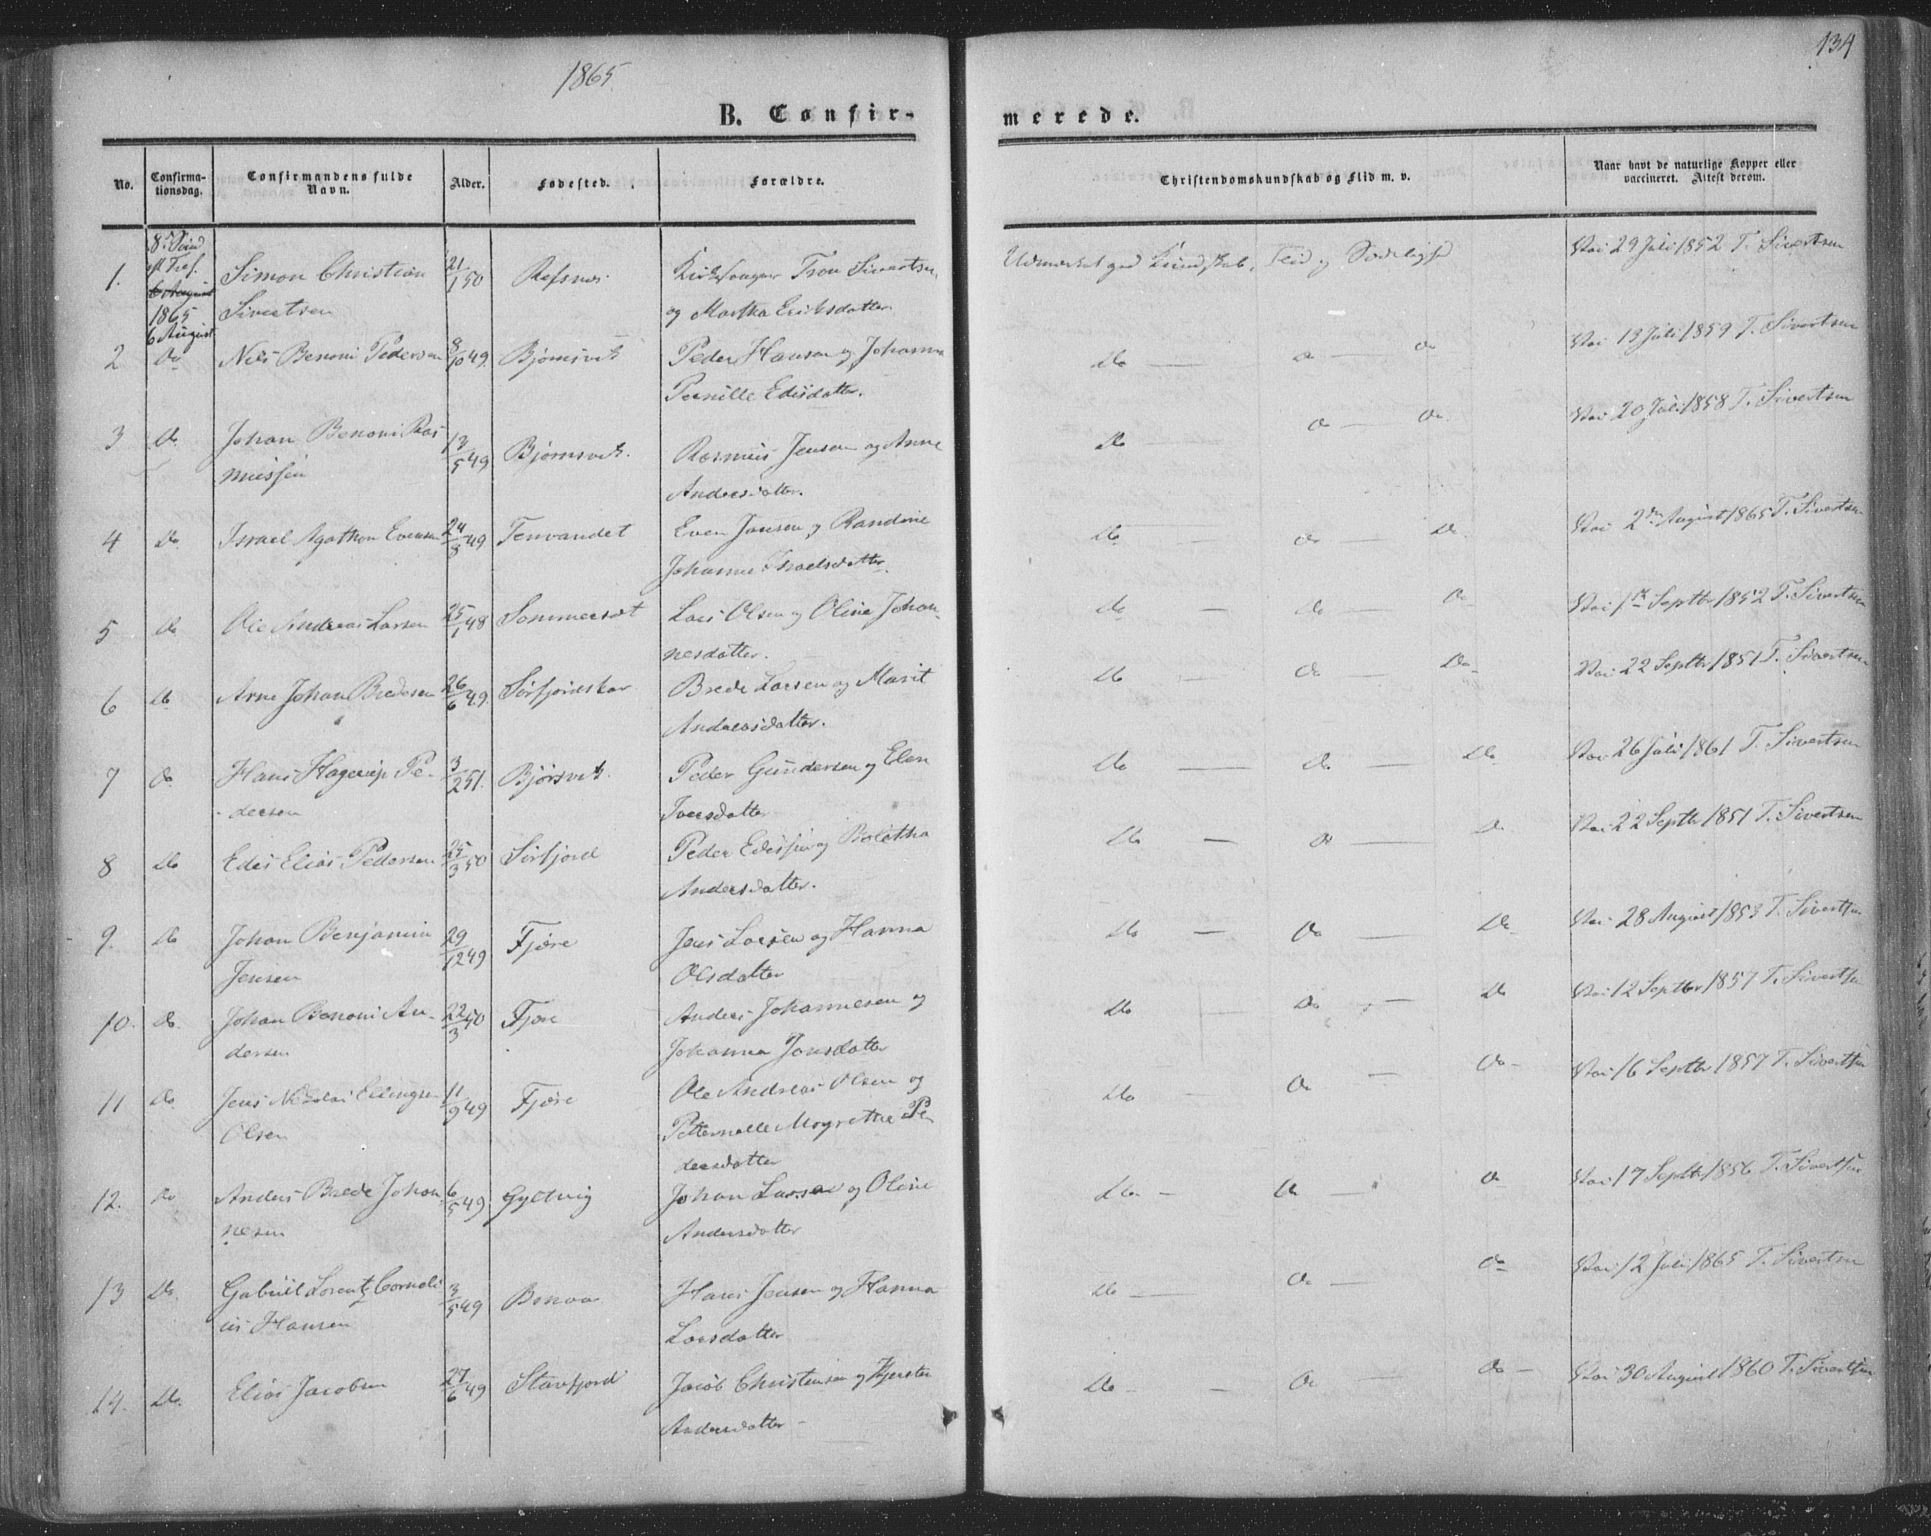 1865
134
B. Confir-
merede.
No.
Confirma-
tionsdag.
Confirmandens fulde
Navn.
Alder.
Fødested.
Forældre.
Christendomskundskab og Flid m. v.
Naar havt de naturlige Kopper eller
vaccineret. Attest derom.
1. 8de Sønd
eft Tref.
6 August
1865
6 August
Simon Christian
Sivertsen
21/1 50 Refsnes
Tron Sivertsen
og Martha Eriksdatter
Udmærket god Kundskab, Flid og Sædelighed
Vac 29 Juli 1852 T. Sivertsen
2 Do Nels Benoni Pedersen 8/10 49. Bjørnsvik Peder Hansen og Johanna
Pernille Edisdatter.
Do — Do — Do Vac 13 Juli 1859 T. Sivertsen
3 Do. Johan Benoni Ras-
mussen
13/5 49 Bjørnsvik. Rasmus Jensen og Anne
Andersdatter.
Do — Do — Do. Vac 20 Juli 1858 T. Sivertsen
4 Do Israel Agathon Evensen 24/8 49 Tenvandet Even Jansen og Randine
Johanna Israelsdatter
Do — Do — Do. Vac 2den August 1865 T. Sivertsen
5 Do Ole Andreas Larsen 25/1 48 Sommersæt Lars Olsen og Oline Johan-
nesdatter.
Do — Do — Do Vac 1ste Septbr 1852 T. Sivertsen
6 Do Arne Johan Bredesen 26/6 49. Sørfjordskar Brede Larsen og Marit
Andreasdatter.
Do — Do — Do Vac 22 Septbr 1851 T. Sivertsen
7 Do Hans Hagerup Pe-
dersen
3/2 51. Bjørsvik. Peder Gundersen og Elen
Iversdatter
Do — Do — Do Vac 26 Juli 1861 T. Sivertsen
8 Do Edis Elias Pedersen 25/3 50 Sørfjord Peder Edissen og Bolétha
Andersdatter.
Do — Do — Do Vac 22 Septbr 1851 T. Sivertsen
9. Do Johan Benjamin
Jensen
29/12 49 Fjøre Jens Larsen og Hanna
Olsdatter
Do — Do — Do Vac 28 August 1853 T. Sivertsen
10. Do. Johan Benoni An-
dersen
22/3 50 Fjøre Anders Johannesen og
Johanna Jonsdatter
Do Do — Do Vac 12 Septbr 1857 T. Sivertsen
11 Do Jens Nicolai Ellingsen
Olsen
11/9 49 Fjøre Ole Andreas Olsen og
Petternelle Magrethe Pe
dersdatter
Do — Do — Do Vac 16 Septbr 1857 T. Sivertsen
12. Do Anders Brede Johan
nesen
6/5 49 Gyltvig Johan Larsen og Oline
Andersdatter
Do — Do — Do Vac 17 Septbr 1856 T. Sivertsen
13 Do. Gabriel Lorentz Corneli
us Hansen
3/5 49 Bonaa Hans Jensen og Hanna
Larsdatter
Do — Do — Do Vac 12 Juli 1865 T. Sivertsen
14. Do. Elias Jacobsen 27/6 49 Stavfjord Jacob Christensen og Kjersten
Andersdatter
Do — Do — Do — Vac 30 August 1860 T. Sivertsen